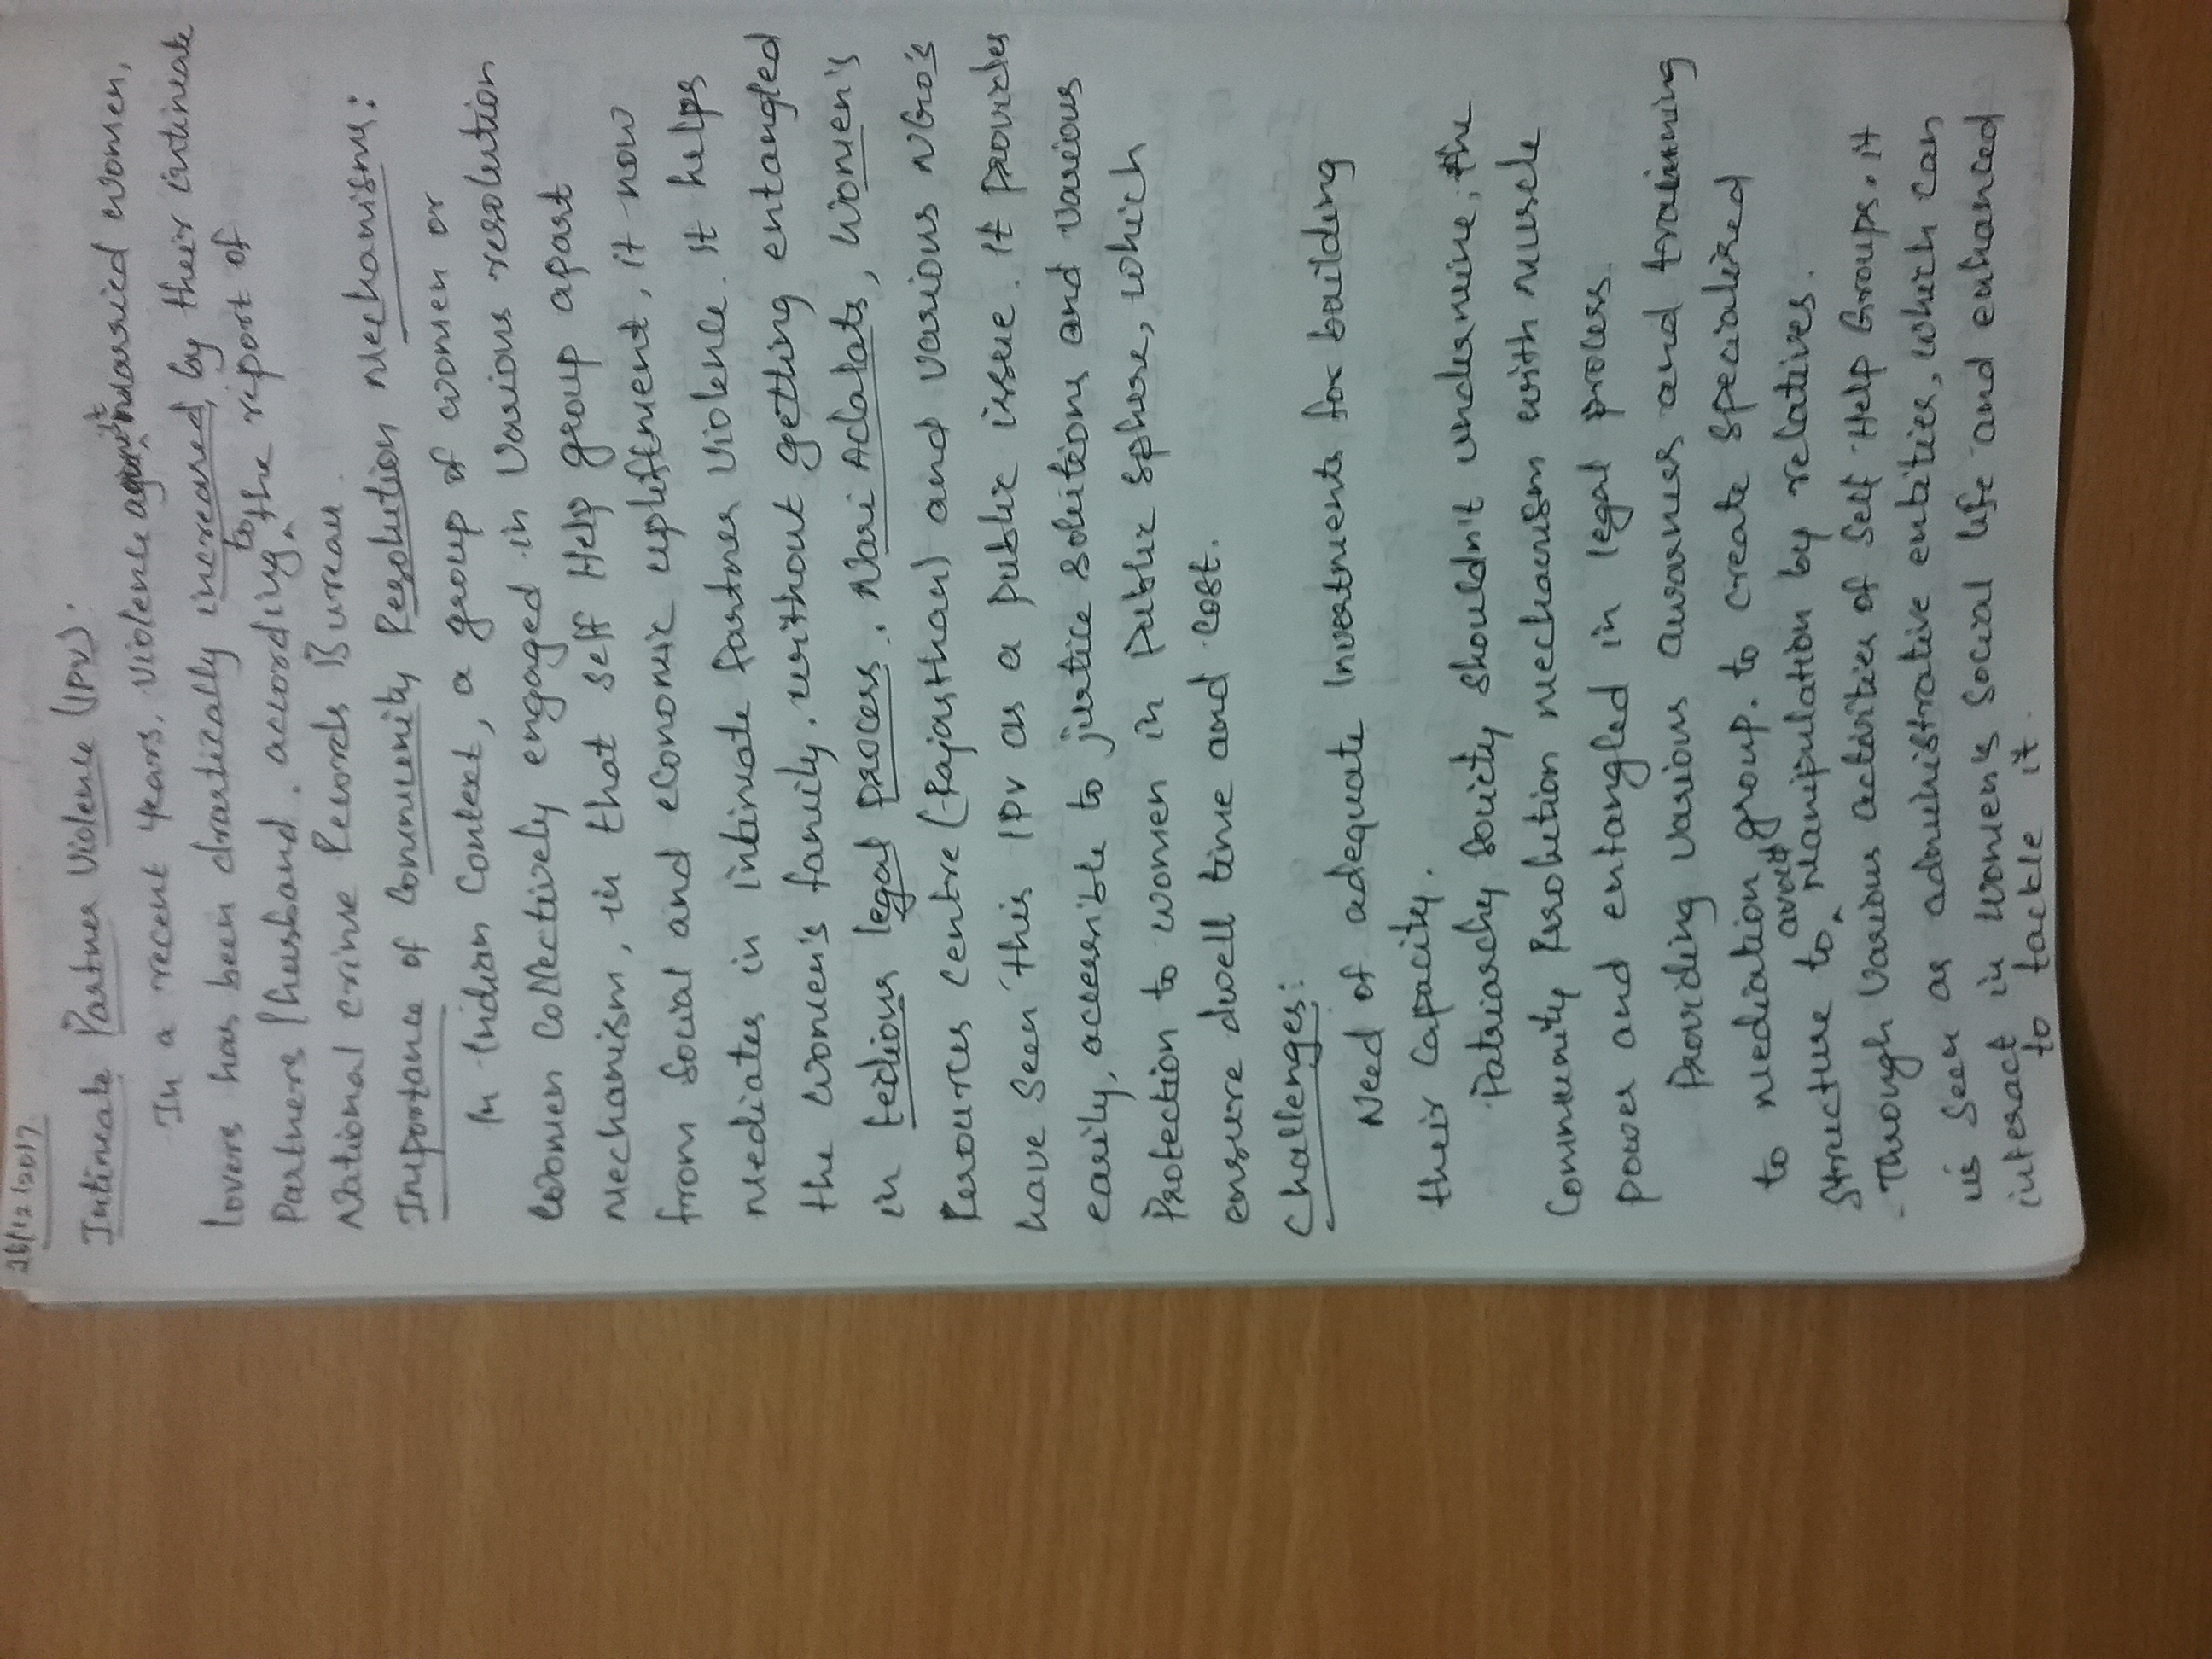 26/12/2017
Intimate Partner Violence (IPV):
In a recent years, violence against married women,
lovers has been drastically increased, by their intimate
Partners/husband. according to the report of
National crime Records Bureau.
Importance of Community Resolution Mechanisms:
In Indian Context, a group of women or
women collectively engaged in various resolution
mechanism, in that self Help group apart
from social and economic upliftment, it now
mediates in intimate Partner violence. It helps
the women's family, without getting entangled
in tedious legal process. Nari Adalats, Women's
Resources Centre (Rajasthan) and various NGO's
have seen this IPV as a public issue. It provides
easily, accessible to justice solutions and various
Protection to women in public sphere, which
ensure dwell time and cost.
Challenges:
Need of adequate Investments for building
their capacity.
Patriarchy society shouldn't undermine, the
Community Resolution mechanism with muscle
power and entangled in legal process.
Providing various awarnes and training
to mediation group. to create specialized
structure to avoid Manipulation by relatives.
- Through various activities of Self Help Groups, it
is seen as administrative entities, which can
interact in women's social life and enhanced
to tackle it.